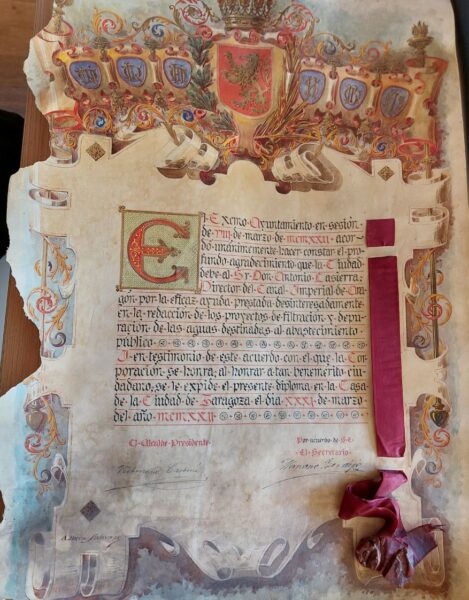 El Excmo Ayuntamiento en sesión
de VIII de marzo de MCMXXII acor-
dó unánimemente hacer constar el pro-
fundo agradecimiento que la Ciudad
debe al Sr Don Antonio Lasierra,
Director del Canal Imperial de Ara-
gón por la eficaz ayuda prestada desinteresadamente
en la redacción de los proyectos de filtración y depu-
ración de las aguas destinadas al abastecimiento
público
I en testimonio de este acuerdo con el que la Cor-
poración se honra al honrar a tan benemérito ciu-
dadano, se le expide el presente diploma en la Casa
de la Ciudad de Zaragoza el día XXXI de marzo
del año MCMXXII
El Alcalde Presidente
Por acuerdo de S. E.
El Secretario
Mariano